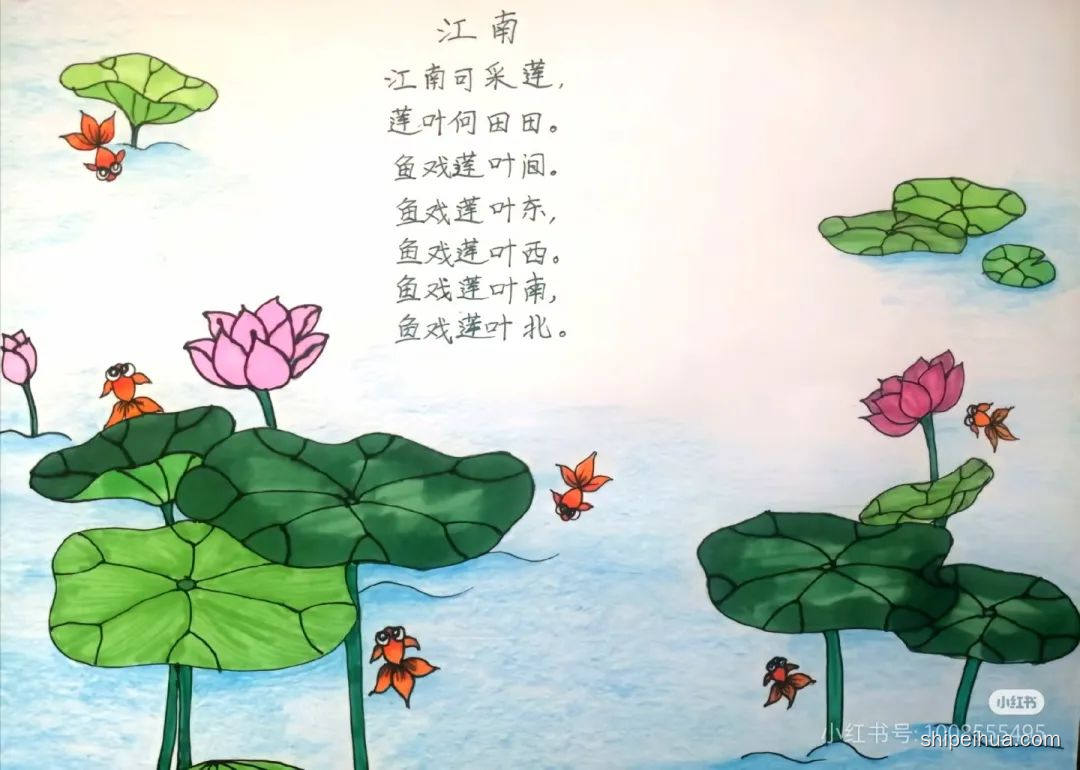 江南
江南可采莲，
莲叶何田田。
鱼戏莲叶间。
鱼戏莲叶东，
鱼戏莲叶西。
鱼戏莲叶南，
鱼戏莲叶北。
小红书
小红书号: 1008555495
shipeihua.com